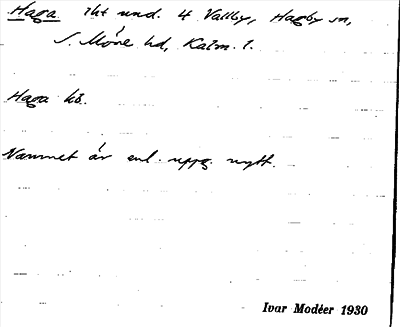 Haga lht und. 4 Vallby, Hagby sn,
S. Möre hd, Kalm. l.
Haga
Namnet är enl. uppg. nytt.
Ivar Modéer 1930